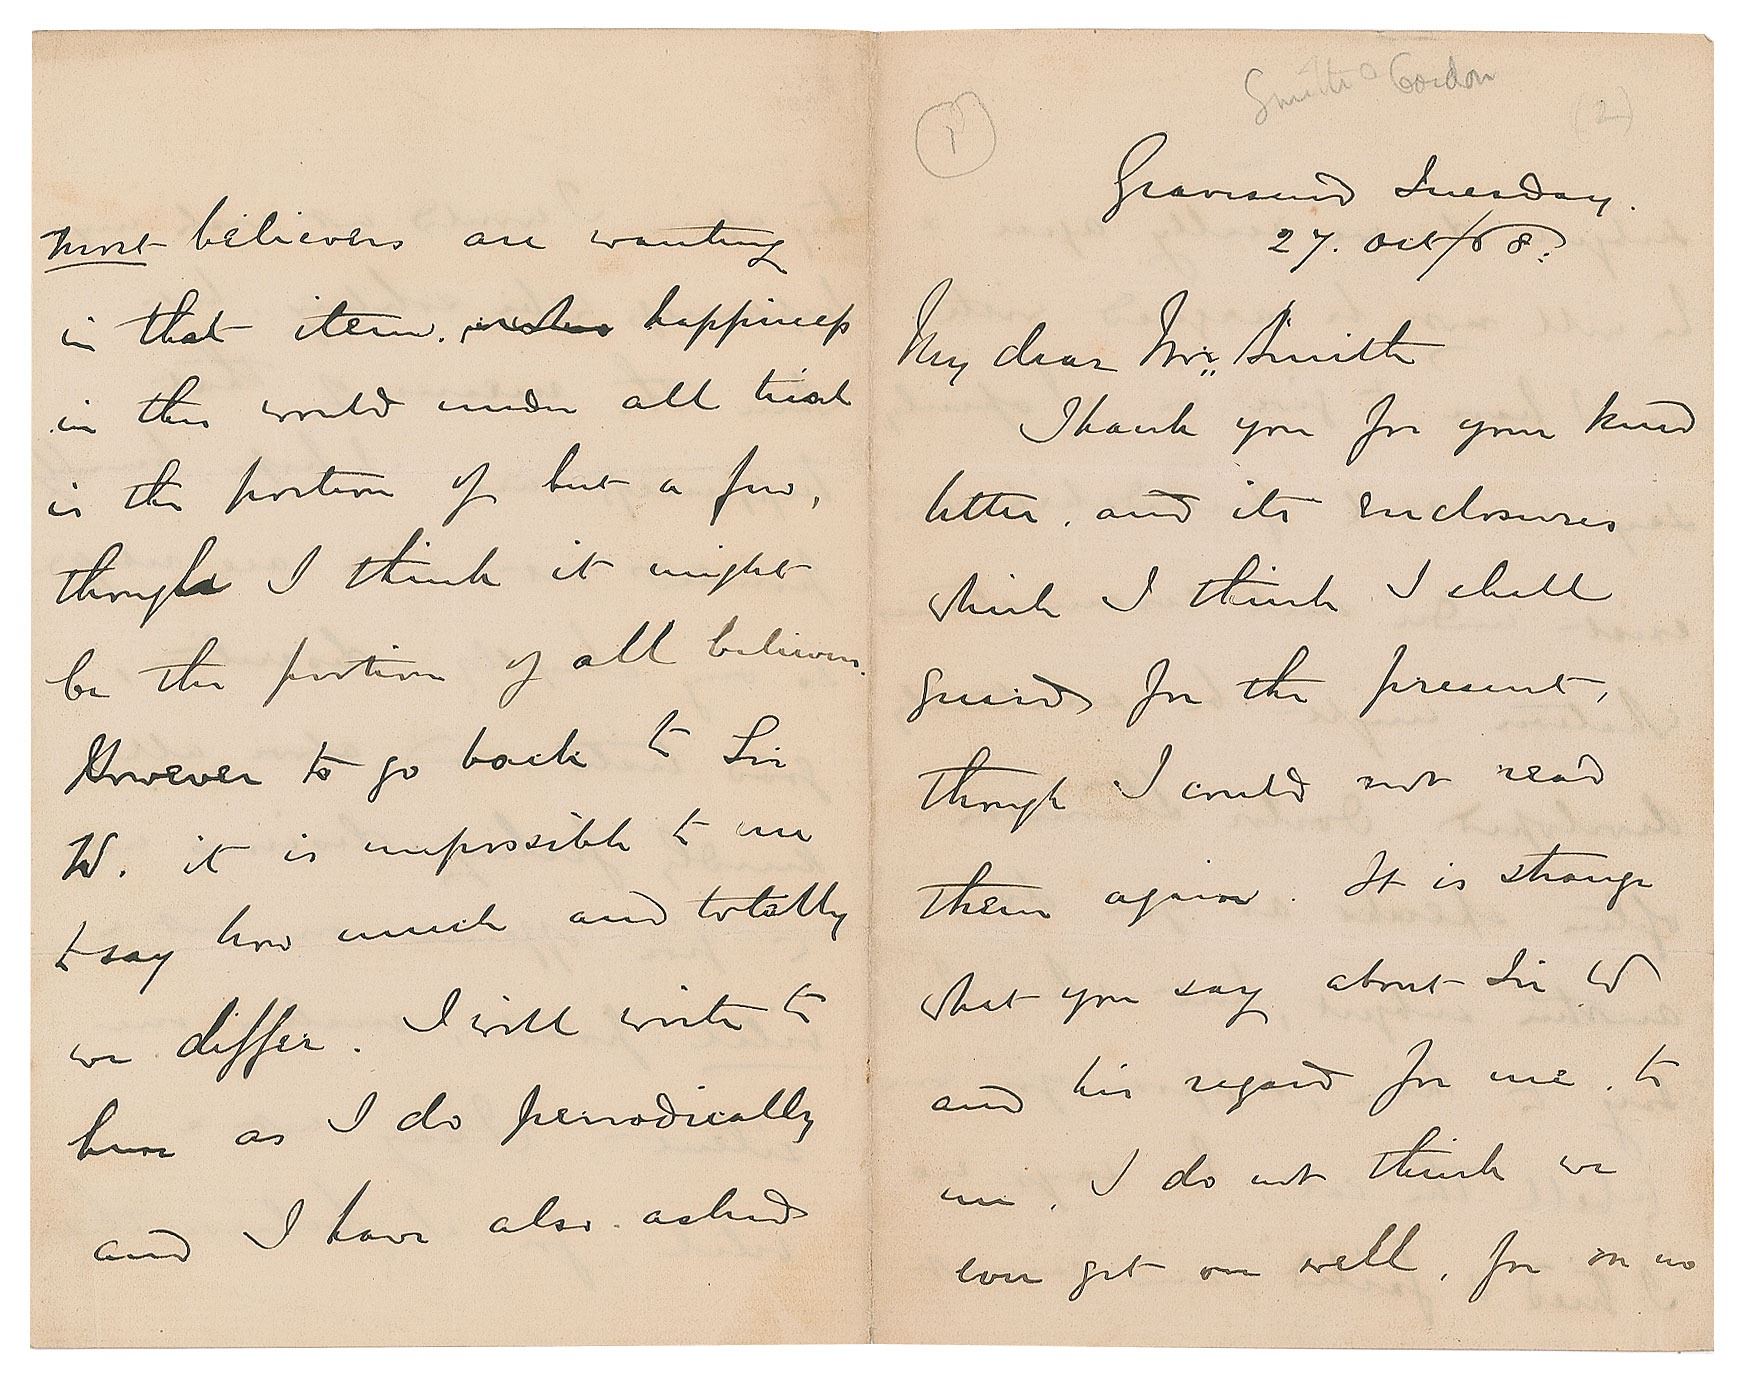 Smith Gordon
(2)
1
Gravesend Tuesday.
27. Oct/68.
My dear Mrs. Smith
Thank you for your kind
letter. and its enclosures
which I think I shall
for the present,
though I could not read
them again. It is strange
what you say about Sir W
and his regard for me. to
me. I do not think we
ever get on well, for on no
most believers are wanting
in that item. happiness
in this world under all trial
is the portion of but a few,
though I think it might
be the portion of all believers.
However to go back to Sir
W. it is impossible to me
to say how much and totally
we differ. I will write to
him as I do periodically
and I have also asked